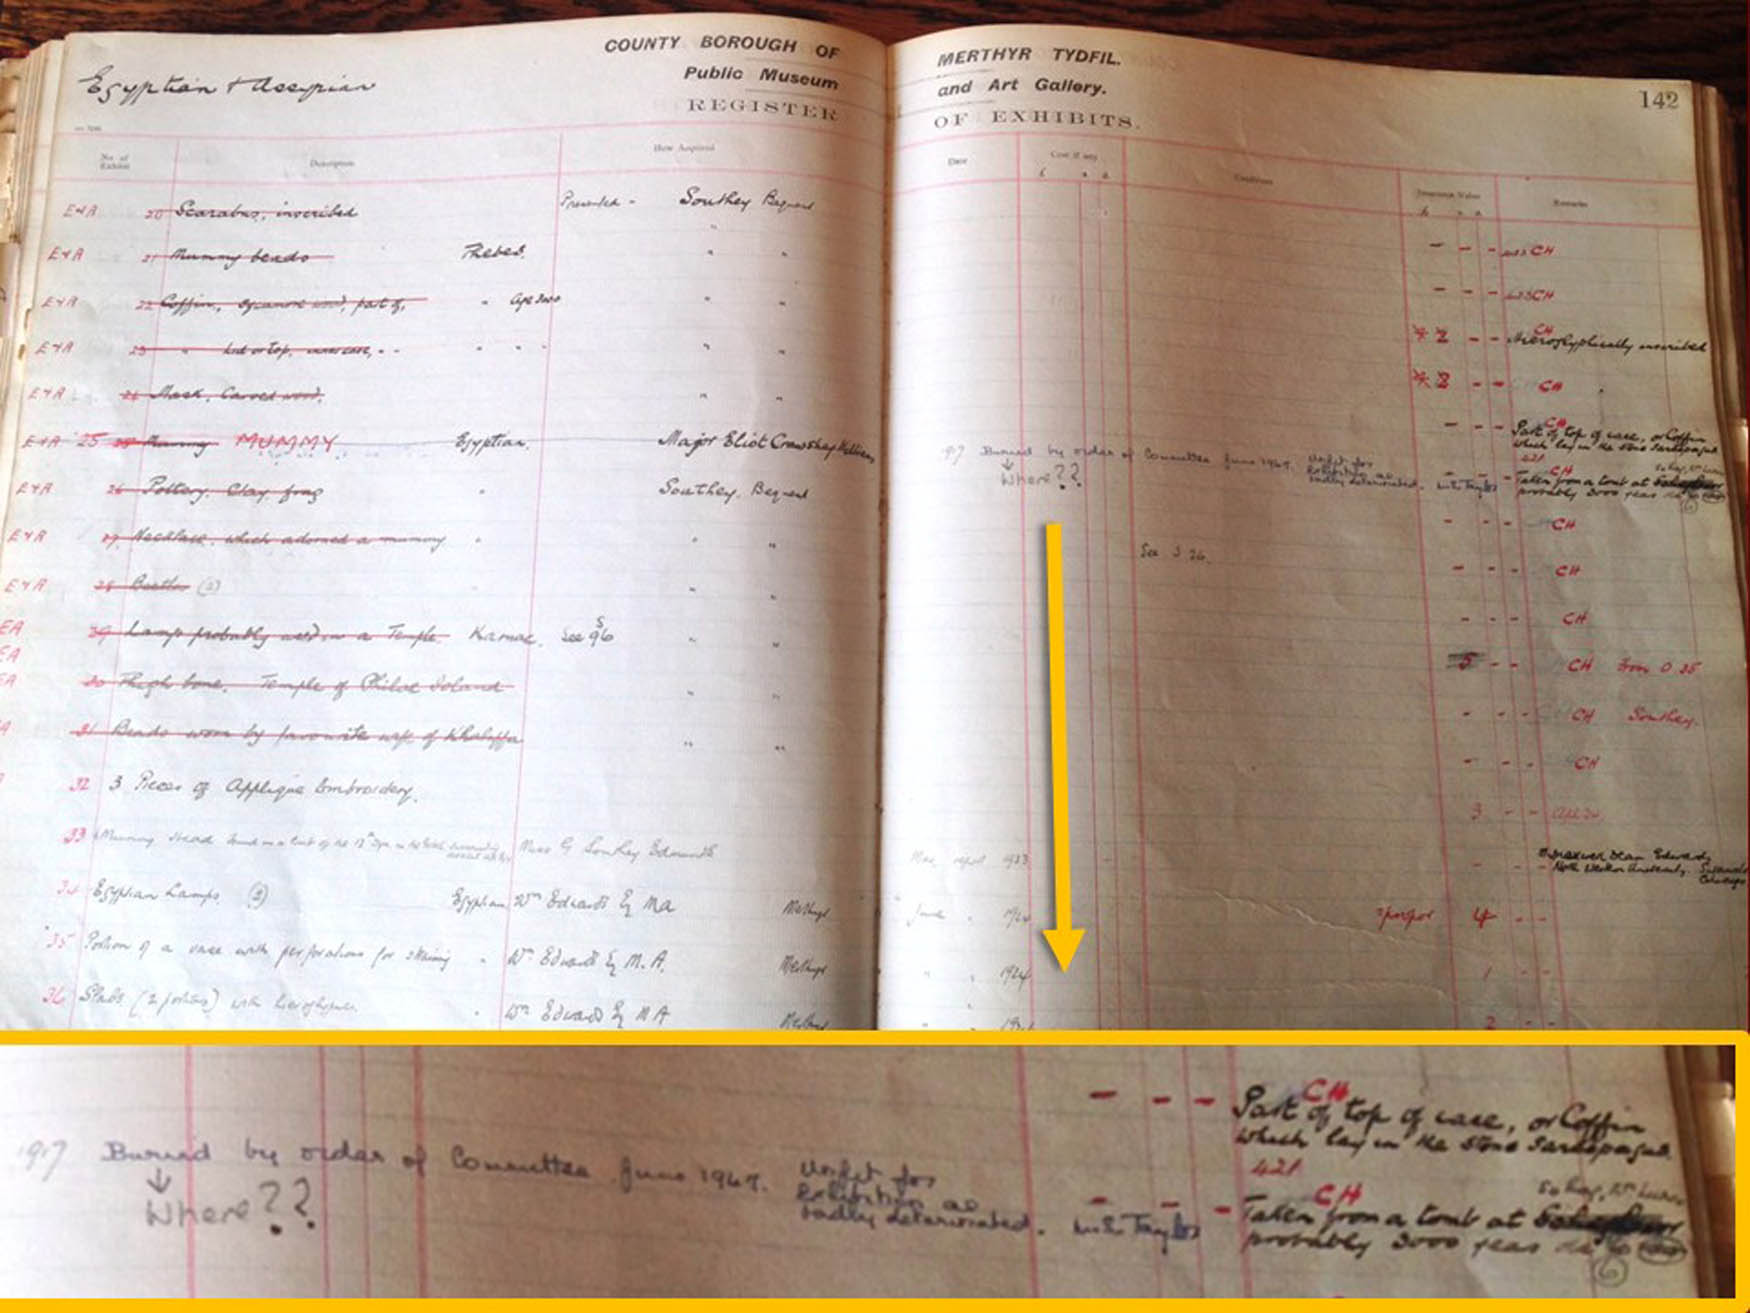 COUNTY BOROUGH OF MERTHYR TYDFIL.
Egyptian & Assyrian
Public Museum and Art Gallery.
142
REGISTER OF EXHIBITS.
No. of Exhibit Description How Acquired Date Cost if any Condition Insurance Value Remarks
E&A 20 Scarabus, inscribed Presented - Southey Bequest
E&A 21 Mummy beads Thebes. " " - - - CH
E&A 22 Coffin, sycamore wood, part of, " Age 3000 " " - - - CH
E&A 23 " Lid or top, inner case, " " " " " 2 - - CH Hieroglyphically inscribed
E&A 24 Mask, Carved wood. " " - - CH
E&A 25 Mummy MUMMY Egyptian. Major Eliot Crawshay Williams - - - CH Part of top of case, or Coffin which lay in the stone Sarcophagus
1917 Buried by order of Committee June 1947. Unfit for Exhibition as badly deteriorated. CH Taken from a tomb at
Where?? probably 3000 years
E&A 26 Pottery, Clay frag " Southey. Bequest - - - CH
E&A 27 Necklace, which adorned a mummy " " " See S 26. - - - CH
E&A 28 Beetles (2) " " - - - CH
EA 29 Lamp probably used in a Temple Karnac. See S 96 " " 5 - - CH from O 35
EA
EA 30 Thigh bone. Temple of Philae Island " " - - - CH Southey.
31 Beads worn by favourite wife of " " - - - CH
32 3 Pieces of Applique Embroidery. 3 - -
33 Mummy Head found in a tomb of the Miss G Southey Edmunds report 1933
34 Egyptian Lamps (2) Egyptian Wm Edwards Esq MA Merthyr June 4 - -
35 Portion of a vase with perforations for straining " Wm Edwards Esq M.A. Merthyr " " 1924 1 - -
36 Slabs (2 portions) with hieroglyphics " Wm Edwards Esq M A Merthyr " " 2 - -
- - - CH
Part of top of case, or Coffin
which lay in the stone Sarcophagus
421
1917 Buried by order of Committee June 1947. Unfit for
Exhibition as
badly deteriorated.
Where??
CH
Taken from a tomb at
probably 3000 years
6